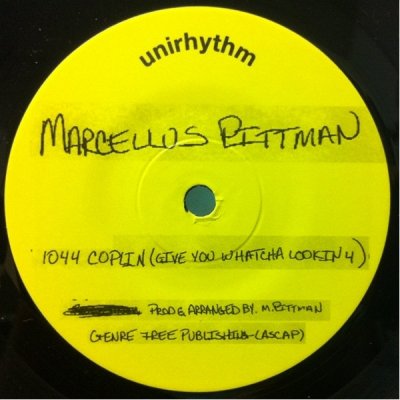 unirhythm
MARCELLUS PITTMAN
1044 COPLIN (GIVE YOU WHATCHA LOOKIN 4)
PROD & ARRANGED BY. M. PITTMAN
GENRE FREE PUBLISHING (ASCAP)